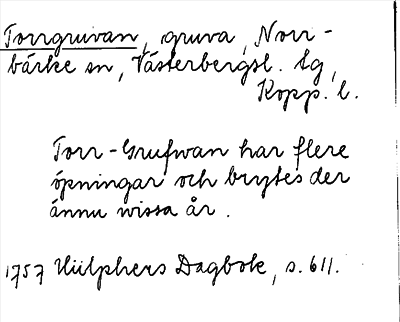 Torrgruvan, gruva, Norr-
bärke sn, Västerbergsl. lg,
Kopp. l.
Torr-Grufwan har flere
öpningar och brytes der
ännu wissa år.
1757 Hülphers Dagbok, s. 611.